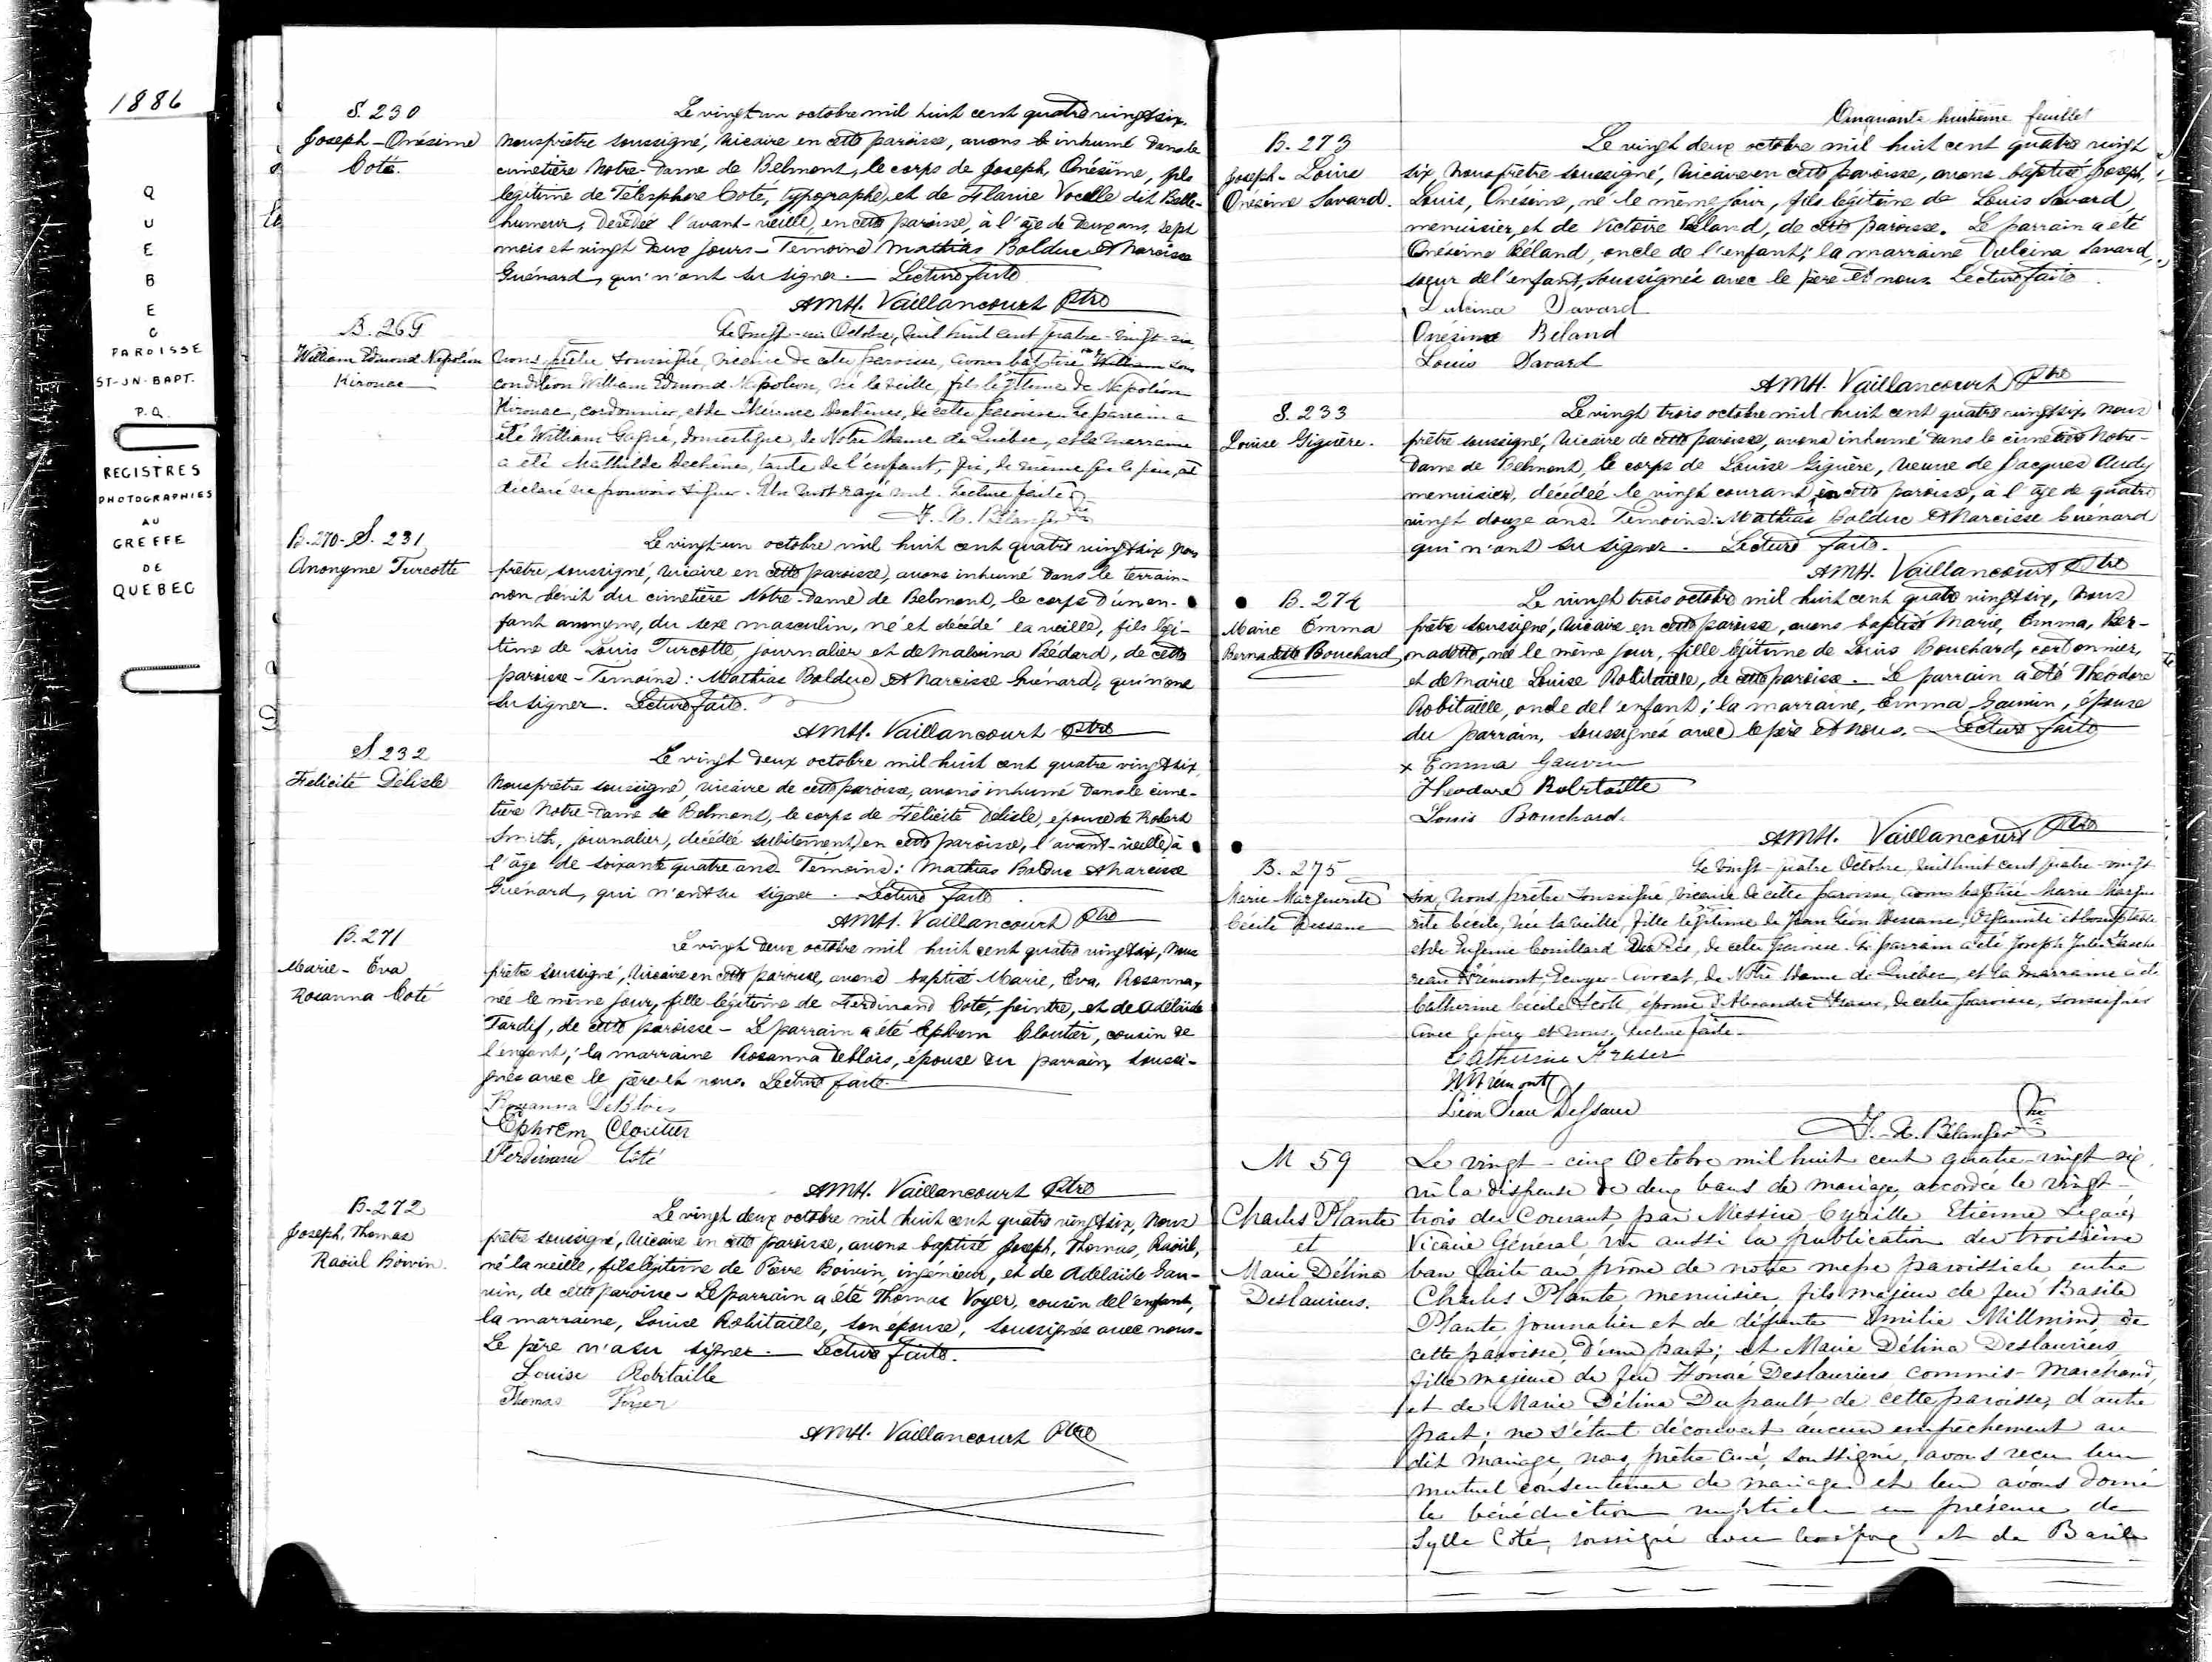 1886
QUEBEC
PAROISSE
ST-JN-BAPT.
P.Q.
REGISTRES
PHOTOGRAPHIES
AU
GREFFE
DE
QUEBEC
S. 230
Joseph-Onésime
Coté.
Le vingt un octobre mil huit cent quatre vingt six
nous prêtre soussigné, vicaire en cette paroisse, avons inhumé dans le
cimetière Notre-Dame de Belmont, le corps de Joseph, Onésime, fils
légitime de Télesphore Coté, typographe, et de Flavie Vocelle dit Belle-
humeur, décédé l'avant-veille, en cette paroisse, à l'âge de deux ans, sept
mois et vingt deux jours - Témoins Mathias Bolduc et Narcisse
Guénard, qui n'ont su signer. — Lecture faite
AMH. Vaillancourt Ptre
B. 269
William Edmond Napoléon
Kirouac
Le vingt-un Octobre, mil huit cent quatre-vingt-six
nous prêtre soussigné, vicaire de cette paroisse, avons baptisé William sous
condition William Edmond Napoléon, né la veille, fils légitime de Napoléon
Kirouac, cordonnier, et de Mérence Dechênes, de cette paroisse. Le parrain a
été William Gagné, domestique, de Notre Dame de Québec, et la marraine
a été Mathilde Dechêne, tante de l'enfant, qui, de même que le père, ont
déclaré ne pouvoir signer. Un mot rayé nul. Lecture faite
F. X. Bélanger
B. 270 - S. 231
Anonyme Turcotte
Le vingt-un octobre mil huit cent quatre vingt six nous
prêtre, soussigné, vicaire en cette paroisse, avons inhumé dans le terrain
non bénit du cimetière Notre-Dame de Belmont, le corps d'un en-
fant anonyme, du sexe masculin, né et décédé la veille, fils légi-
time de Louis Turcotte journalier et de Malvina Bédard, de cette
paroisse - Témoins: Mathias Bolduc et Narcisse Guénard, qui n'ont
su signer. Lecture faite.
AMH. Vaillancourt Ptre
S. 232
Félicité Delisle
Le vingt deux octobre mil huit cent quatre vingt six,
nous prêtre soussigné, vicaire de cette paroisse, avons inhumé dans le cime-
tière Notre-Dame de Belmont, le corps de Félicité Delisle, épouse de Robert
Smith, journalier, décédée subitement, en cette paroisse, l'avant-veille, à
l'âge de soixante quatre ans. Témoins: Mathias Bolduc et Narcisse
Guénard, qui n'ont su signer. Lecture faite.
AMH. Vaillancourt Ptre
B. 271
Marie-Éva
Rosanna Coté
Le vingt deux octobre mil huit cent quatre vingt six, nous
prêtre soussigné, vicaire en cette paroisse, avons baptisé Marie, Éva, Rosanna,
née le même jour, fille légitime de Ferdinand Coté, peintre, et de Adélaïde
Tardif, de cette paroisse - Le parrain a été Ephrem Cloutier, cousin de
l'enfant; la marraine Rosanna DeBlois, épouse du parrain, soussi-
gnés avec le père et nous. Lecture faite.
Rosanna DeBlois
Ephrem Cloutier
Ferdinand Côté
AMH. Vaillancourt Ptre
B. 272
Joseph, Thomas
Raoül Boivin.
Le vingt deux octobre mil huit cent quatre vingt six, nous
prêtre soussigné, vicaire en cette paroisse, avons baptisé Joseph, Thomas, Raoül,
né la veille, fils légitime de Pierre Boivin, ingénieur, et de Adelaïde Gau-
vin, de cette paroisse - Le parrain a été Thomas Voyer, cousin de l'enfant,
la marraine, Louise Robitaille, son épouse, soussignés avec nous.
Le père n'a su signer. Lecture faite.
Louise Robitaille
Thomas Voyer
AMH. Vaillancourt Ptre
Cinquante huitième feuillet
B. 273
Joseph-Louis
Onésime Savard.
Le vingt deux octobre mil huit cent quatre vingt
six, nous prêtre soussigné, vicaire en cette paroisse, avons baptisé Joseph,
Louis, Onésime, né le même jour, fils légitime de Louis Savard
menuisier, et de Victoire Béland, de cette paroisse. Le parrain a été
Onésime Béland, oncle de l'enfant; la marraine Dulcina Savard,
soeur de l'enfant, soussignés avec le père et nous. Lecture faite.
Dulcina Savard
Onésime Béland
Louis Savard
AMH. Vaillancourt Ptre
S. 233
Louise Giguère.
Le vingt trois octobre mil huit cent quatre vingt six nous
prêtre soussigné, vicaire de cette paroisse, avons inhumé dans le cimetière Notre-
Dame de Belmont, le corps de Louise Giguère, veuve de Jacques Audy
menuisier, décédée le vingt courant, en cette paroisse, à l'âge de quatre
vingt douze ans. Témoins: Mathias Bolduc et Narcisse Guénard
qui n'ont su signer. Lecture faite.
AMH. Vaillancourt Ptre
B. 274
Marie Emma
Bernadette Bouchard
Le vingt trois octobre mil huit cent quatre vingt six, nous
prêtre soussigné, vicaire en cette paroisse, avons baptisé Marie, Emma, Ber-
nadette, née le même jour, fille légitime de Louis Bouchard, cordonnier,
et de Marie Louise Robitaille, de cette paroisse. Le parrain a été Théodore
Robitaille, oncle de l'enfant; la marraine, Emma Gauvin, épouse
du parrain, soussignés avec le père et nous. Lecture faite
x Emma Gauvin
Theodore Robitaille
Louis Bouchard.
AMH. Vaillancourt Ptre
B. 275
Marie Marguerite
Cécile Dessane
Le vingt-quatre Octobre, mil huit cent quatre-vingt
six, nous prêtre soussigné vicaire de cette paroisse, avons baptisé Marie Margue
rite Cécile, née la veille, fille légitime de Jean Léon Dessane, organiste et comptable
et de Eugénie Couillard Després, de cette paroisse. Le parrain a été Joseph Jules Tasche
reau Frémont, Écuyer avocat, de Notre Dame de Québec, et la marraine a été
Catherine Cécile Scott, épouse d'Alexandre Fraser, de cette paroisse, soussignés
avec le père et nous. Lecture faite.
Catherine Fraser
Frémont
Léon Jean Dessane
F. X. Bélanger Ptre
M 59
Charles Plante
et
Marie Délina
Deslauriers.
Le vingt-cinq Octobre mil huit cent quatre-vingt six,
vu la dispense de deux bans de mariage, accordée le vingt-
trois du Courant par Messire Cyrille Etienne Legaré,
Vicaire Général, vu aussi la publication du troisième
ban faite au prône de notre messe paroissiale entre
Charles Plante menuisier fils majeur de feu Basile
Plante journalier et de défunte Emilie Millmind, de
cette paroisse, d'une part; et Marie Délina Deslauriers
fille majeure de feu Honoré Deslauriers commis-Marchand,
et de Marie Délina Dupault, de cette paroisse, d'autre
part; ne s'étant découvert aucun empêchement au
dit mariage, nous, prêtre curé, soussigné, avons reçu leur
mutuel consentement de mariage et leur avons donné
la bénédiction nuptiale en présence de
Sylle Coté, soussigné avec les époux et de Basile